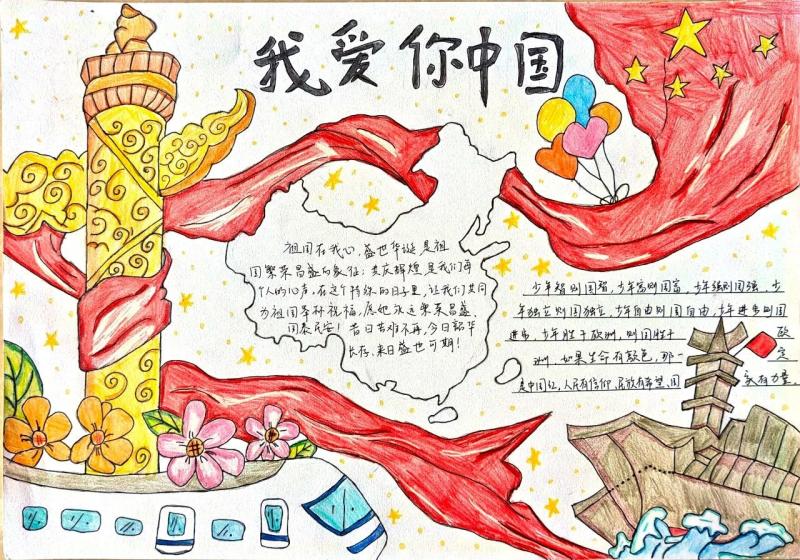 我爱你中国
祖国在我心,盛世华诞是祖
国繁荣昌盛的象征;共庆辉煌是我们每
个人的心声。在这个特殊的日子里,让我们共同
为祖国举杯祝福,愿她永远繁荣昌盛
国泰民安!昔日苦难不再,今日韶华
长存,来日盛世可期!
少年智则国智,少年富则国富,少年强则国强,少
年独立则国独立,少年自由则国自由,少年进步则国
进步,少年胜于欧洲,则国胜于 欧
洲,如果生命有颜色,那一 定
是中国红,人民有信仰,民族有希望,国 家有力量。